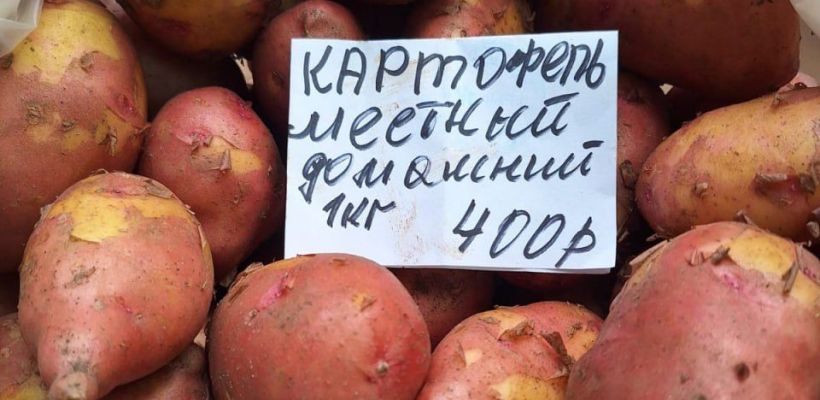 КАРТОФЕЛЬ
местный
домашний
1кг 400р